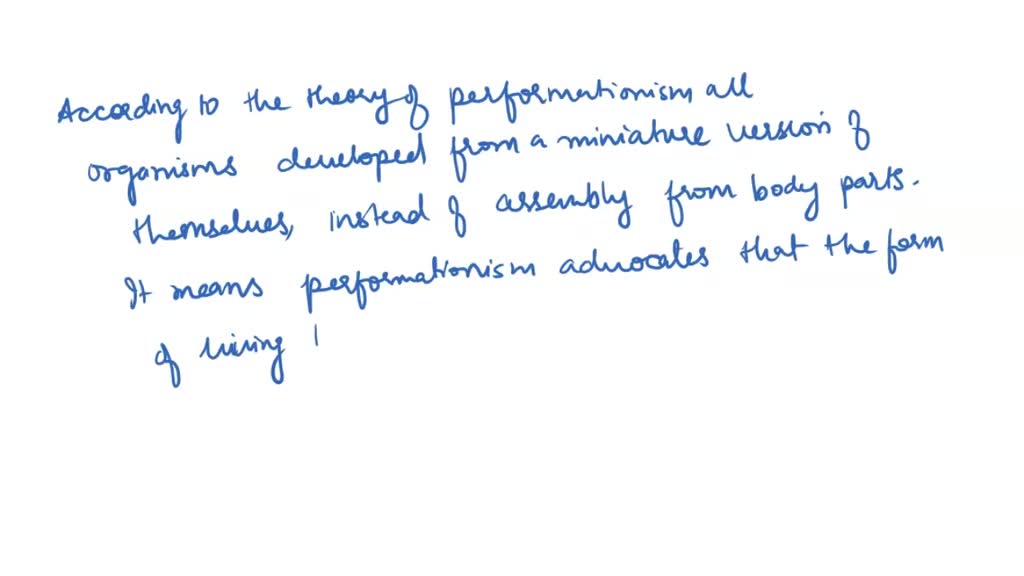 According to the theory of performationism all
organisms developed from a miniature version of
themselves, instead of assembly from body parts.
It means performationism advocates that the form
of living